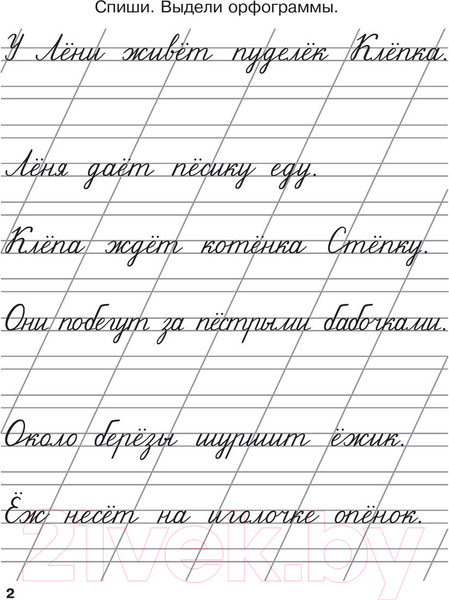 Спиши. Выдели орфограммы.
У Лёни живёт пуделёк Клёпка.
Лёня даёт пёсику еду.
Клёпа ждёт котёнка Стёпку.
Они побегут за пёстрыми бабочками.
Около берёзы шуршит ёжик.
Ёж несёт на иголочке опёнок.
2
21vek.by